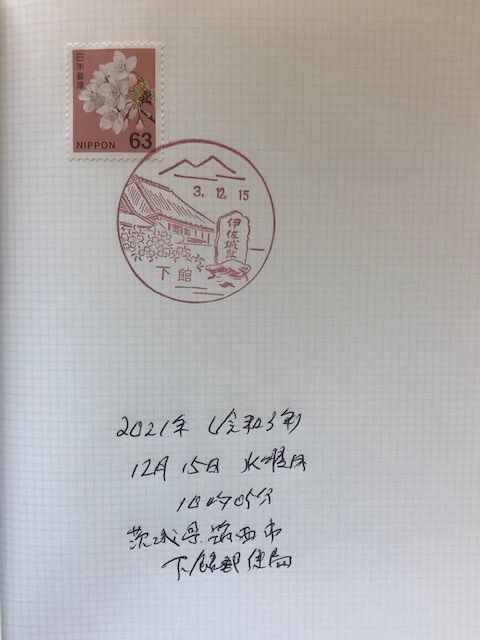 日本郵便
NIPPON 63
3.12.15
伊佐城趾
下館
2021年(令和3年)
12月15日 水曜日
10時05分
茨城県筑西市
下館郵便局